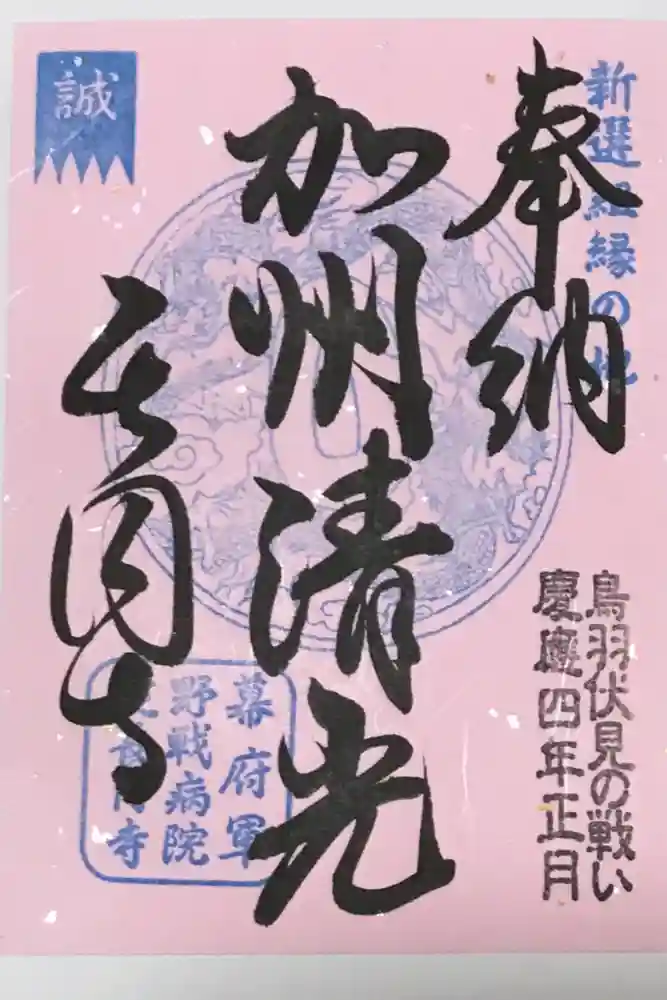 新選組縁の地
奉納
鳥羽伏見の戦い
慶應四年正月
加州清光
誠
長円寺
幕府軍
野戦病院
寺